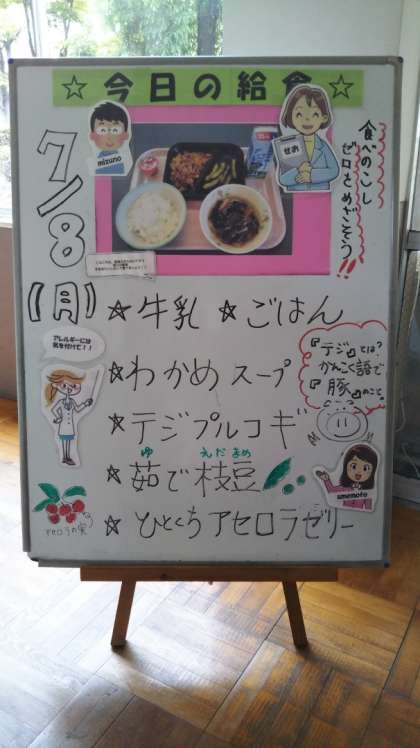 ☆今日の給食☆
mizuno
せお
食べのこし
ゼロをめざそう!!
7/8
(月)
☆牛乳 ☆ごはん
アレルギーには
気を付けて!!
☆わかめスープ
『テジ』とは?
かんこく語で
『豚』のこと。
☆テジプルコギ
ゆ えだまめ
☆茹で枝豆
umemoto
☆ひとくちアセロラゼリー
アセロラの実